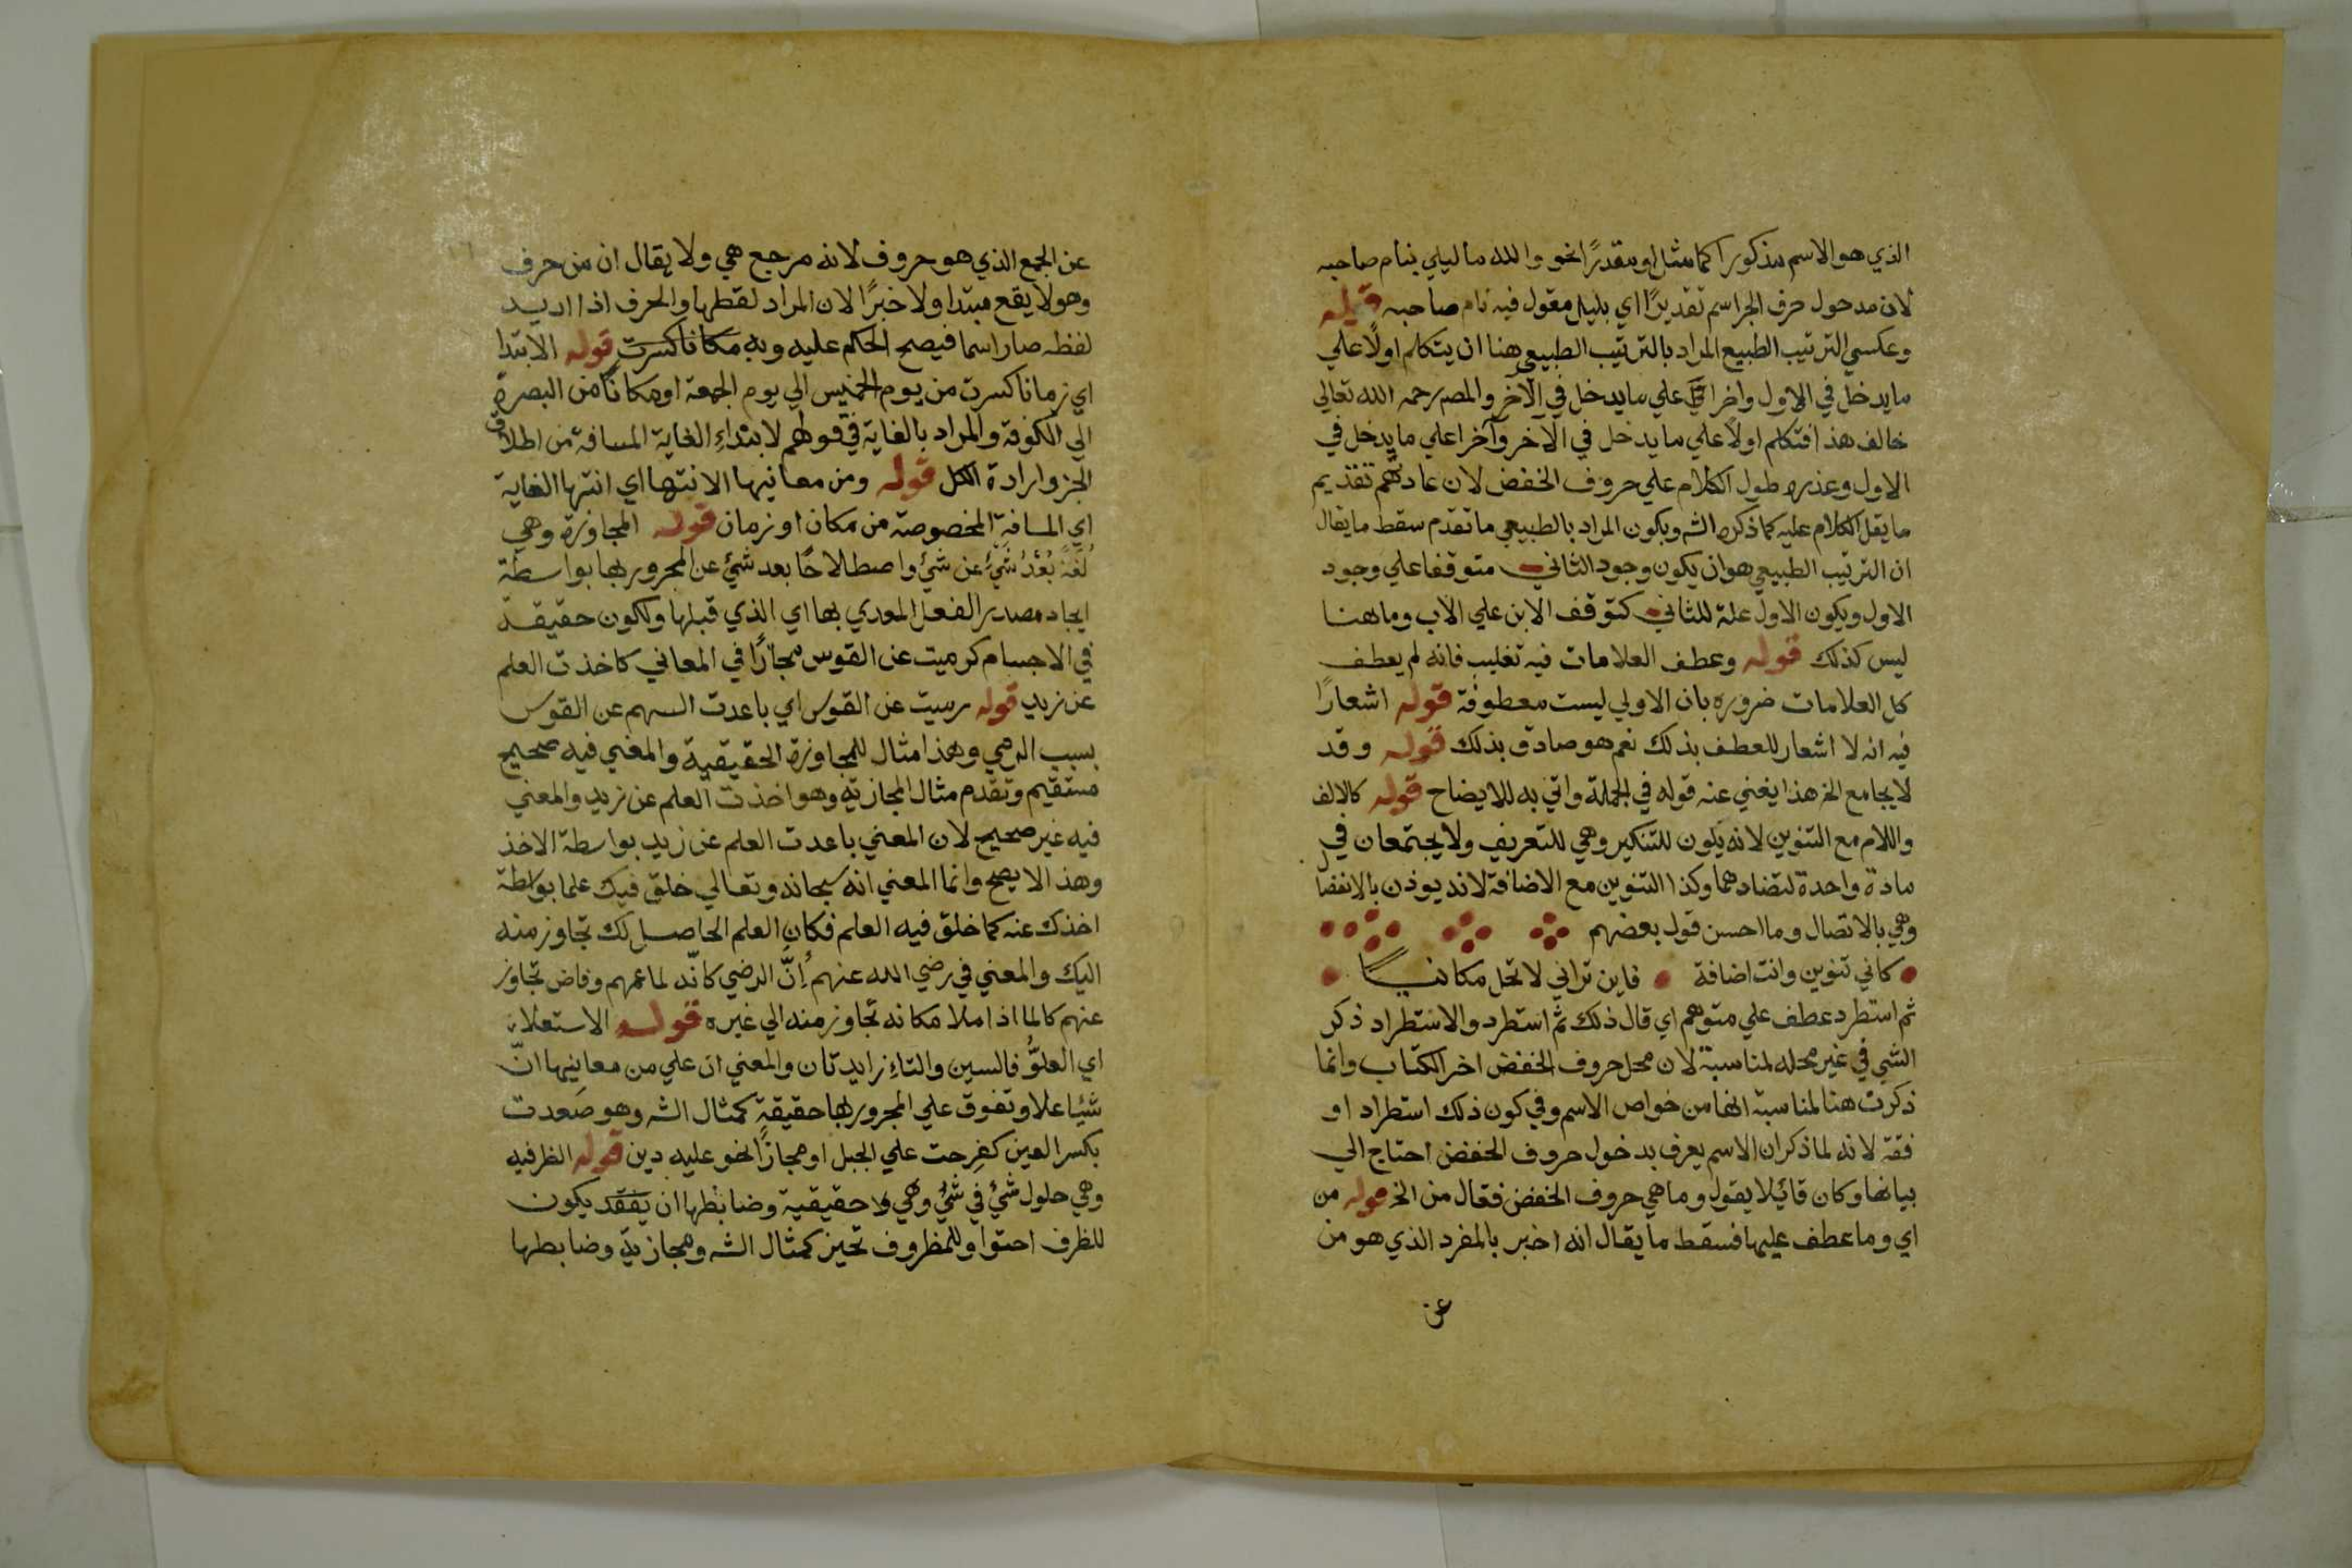 الذي هو الاسم مذكورا كما مثل او مقدرًا نحو والله ما ليلي بنام صاحبه
لان مدحول حرف الجر اسم تقديرًا اي بليل مقول فيه نام صاحبه قوله
وعكسي الترتيب الطبيع المراد بالترتيب الطبيعي هنا ان يتكلم اولًا علي
ما يدخل في الاول واخرا علي ما يدخل في الآخر والمص رحمه الله تعالى
خالف هذا فتكلم اولًا علي ما يدخل في الآخر وآخرا علي ما يدخل في
الاول وعذره طول الكلام علي حروف الخفض لان عادتهم تقديم
ما يقل الكلام عليه كما ذكره الشه وبكون المراد بالطبيعي ما تقدم سقط ما يقال
ان الترتيب الطبيعي هو ان يكون وجود الثاني متوقفا علي وجود
الاول ويكون الاول علة للثاني كتوقف الابن علي الاب وما هنا
ليس كذلك قوله وعطف العلامات فيه تغليب فانه لم يعطف
كل العلامات ضروره بان الاولي ليست معطوفة قوله اشعارًا
فيه انه لا اشعار للعطف بذلك نعم هو صادق بذلك قوله وقد
لا يجامع الخ هذا يغني عنه قوله في الجملة واتي به للايضاح قوله كالالف
واللام مع التنوين لانه يكون للتنكير وهي للتعريف ولا يجتمعان في
مادة واحدة لتضادهما وكذا التنوين مع الاضافة لانه يوذن بالانفصال
وهي بالاتصال وما احسن قول بعضهم
كاني تنوين وانت اضافة فاين تراني لا تحل مكانيًا
ثم استطرد عطف علي متوهم اي قال ذلك ثم استطرد والاستطراد ذكر
الشي في غير محله لمناسبة لان محل حروف الخفض اخر الكتاب وانما
ذكرت هنا لمناسبة انها من خواص الاسم وفي كون ذلك استطراد او
فقة لانه لما ذكر ان الاسم يعرف بدخول حروف الخفض احتاج الي
بيانها وكان قائيلا يقول وما هي حروف الخفض فقال من الخ قوله من
اي وما عطف عليها فسقط ما يقال انه اخبر بالمفرد الذي هو من
عن
عن الجمع الذي هو حروف لانه مرجع هي ولا يقال ان من حرف
وهو لا يقع مبتدا ولا خبرًا لان المراد لفظها والحرف اذا اديد
لفظه صار اسما فيصح الحكم عليه وبه مكانا كسرت قوله الابتدا
اي زمانا كسرت من يوم الخميس الي يوم الجمعة او مكانًا من البصرة
الي الكوفة والمراد بالغاية في قولهم لابتداءِ الغاية المسافة من اطلاق
الجز وارادة الكل قوله ومن معانيها الانتها اي انتها الغاية
اي المسافة المخصوصة من مكان او زمان قوله المجاوزة وهي
لُغةً بُعْدُ شَيْءٍ عن شيْ واصطلاحًا بعد شيْ عن المجرور بها بواسطة
ايجاد مصدر الفعل المعدي بها اي الذي قبلها ولكون حقيقة
في الاجسام كرميت عن القوس مجازًا في المعاني كاخذت العلم
عن زيد قوله رميت عن القوس اي باعدت السهم عن القوس
بسبب الرمي وهذا مثال للمجاوزة الحقيقية والمعني فيه صحيح
مستقيم وتقدم مثال المجازية وهو اخذت العلم عن زيد والمعني
فيه غير صحيح لان المعني باعدت العلم عن زيد بواسطة الاخذ
وهذا لا يصح وانما المعني انه سبحانه وتعالي خلق فيك علما بواسطة
اخذك عنه كما خلق فيه العلم فكان العلم الحاصل لك تجاوز منه
اليك والمعني في رضي الله عنهم اِنّ الرضي كانّه لما عمهم وفاض تجاوز
عنهم كالما اذا ملا مكانه تجاوز منه الي غيره قوله الاستعلاء
اي العلوُّ فالسين والتاءِ زايدتان والمعني ان علي من معانيها انّ
شيًا علا وتفوق علي المجرور بها حقيقةٍ كمثال الشه وهو صَعدت
بكسر العين كفرِحت علي الجبل او مجازًا نحو عليه دين قوله الظرفيه
وهي حلول شيْ في شيْ وهي ولا حقيقية وضابطها ان يفقد يكون
للظرف احتوا وللمظروف تحيز كمثال الشه ومجازية وضابطها